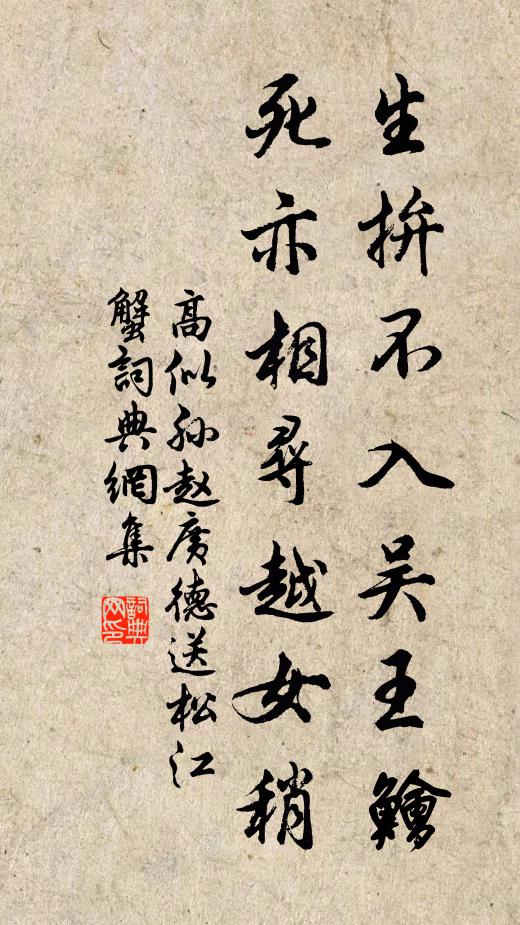 生拚不入吴王鱠
死亦相尋越女稍
高似孙赵廣德送松江
蟹詞典網集
詞典
网印